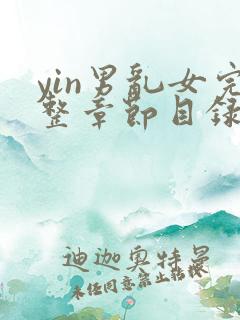 yin男乱女完
整章节目录
迪迦奥特曼
未经同意禁止转载